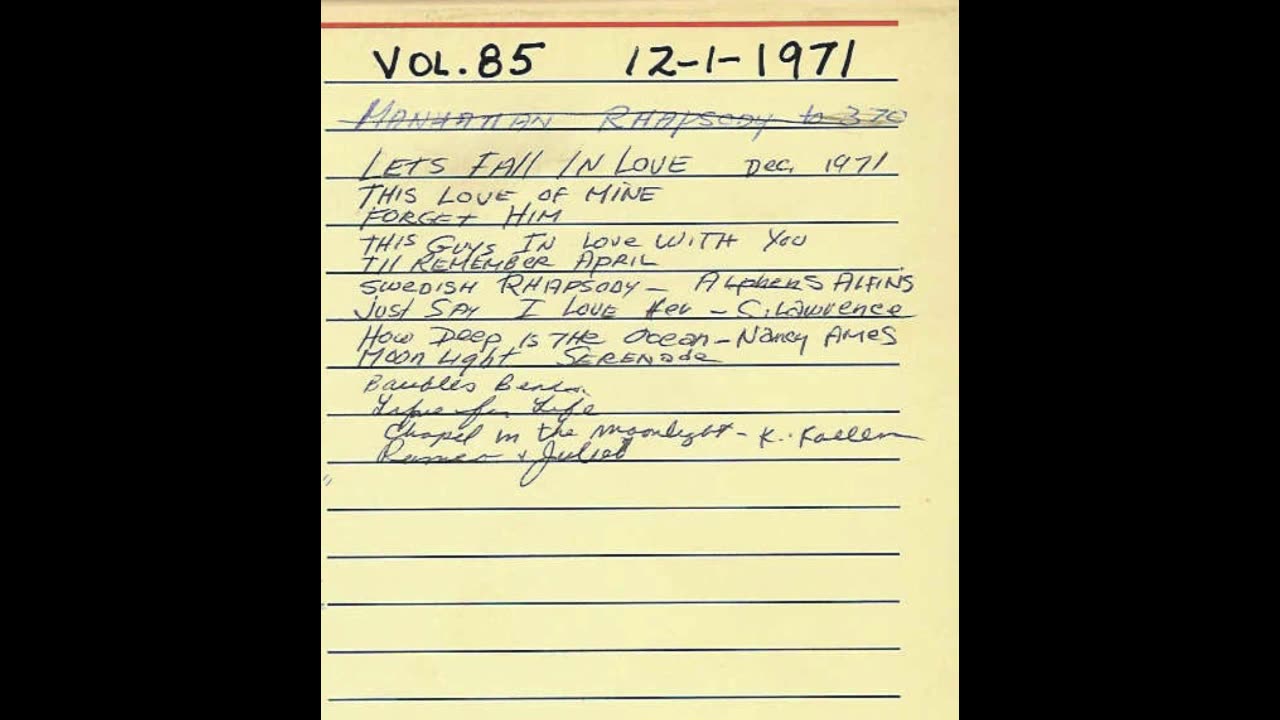 VOL. 85 12-1-1971
MANHATTAN RHAPSODY to 370
LETS FAll IN LOVE DEC. 1971
THIS LOVE OF MINE
FORGET HIM
THIS GUYS IN Love WITH You
I'll REMEMBER APRIL
SWEDISH RHAPSODY - ALphenS ALFINS
JUST SAY I LOVE Her - S. Lawrence
How Deep is THE Ocean - Nancy AMES
Moon Light SERENADe
Baubles
Life
Chapel in the moonlight - K. Kallen
Romeo & Juliet